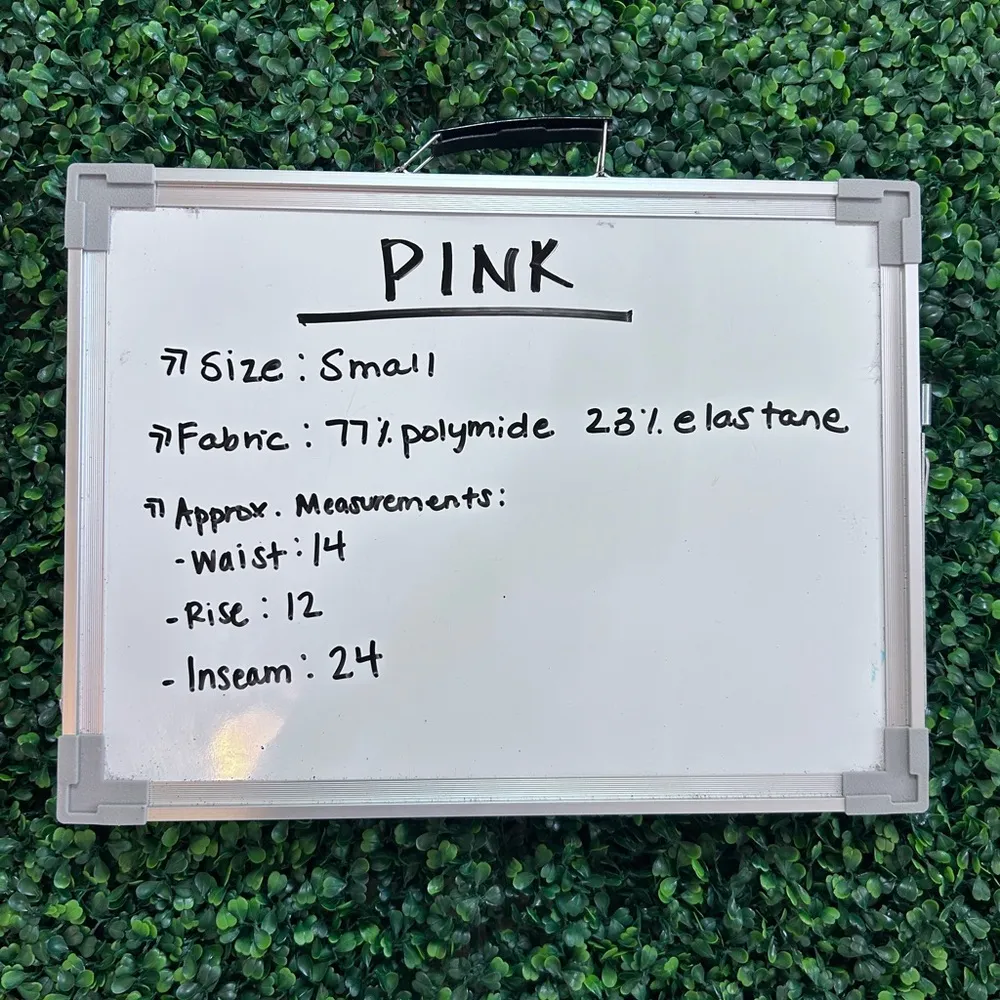 PINK
Size: Small
Fabric: 77% polymide 23% elastane
Approx. Measurements:
- Waist: 14
- Rise: 12
- Inseam: 24